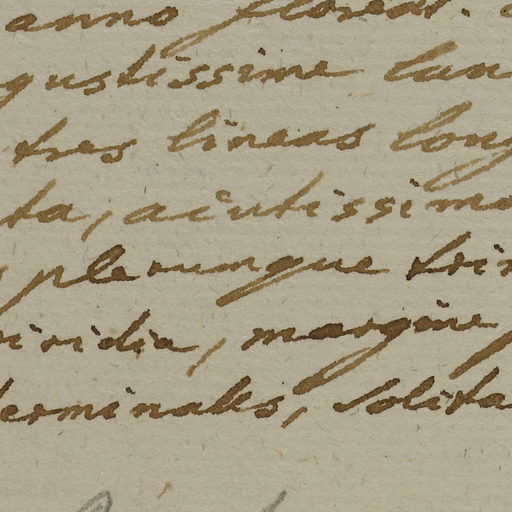 anno floreat.
gustissime lan
tres lineas long
ta, acutissima
plerumque trin
viridia, margine
terminales, solita